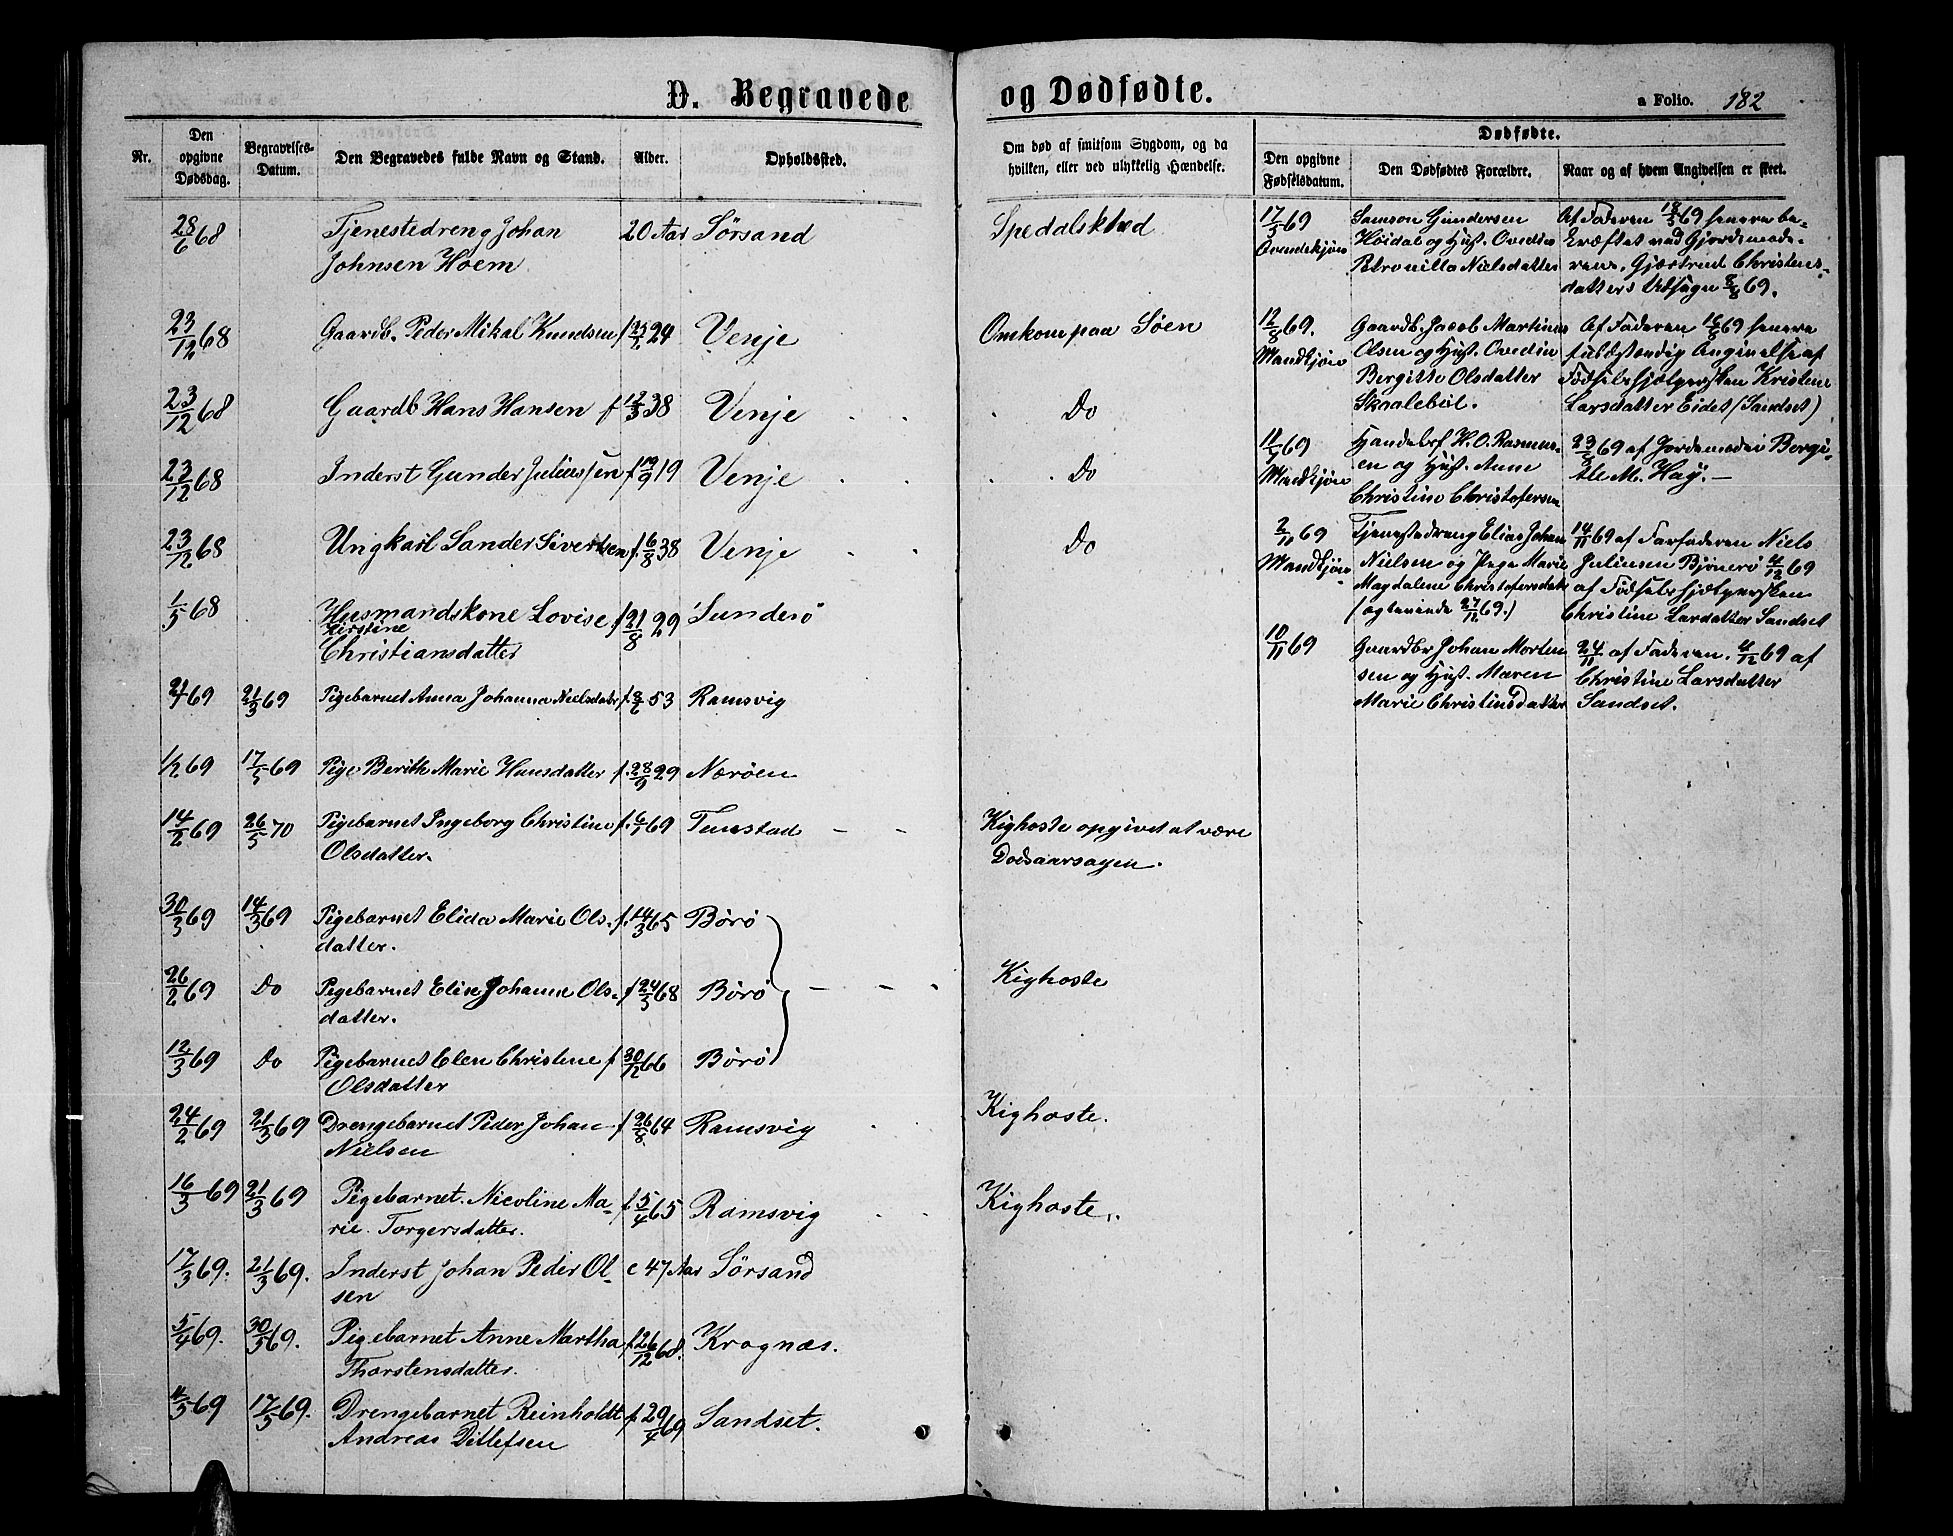 D. Begravede
og Dødfødte.
a Folio. 182
Nr.
Den opgivne Dødsdag.
Begravelses-Datum.
Den Begravedes fulde Navn og Stand.
Alder.
Opholdssted.
Om død af smitsom Sygdom, og da
hvilken, eller ved ulykkelig Hændelse.
Dødfødte.
Den opgivne Fødselsdatum.
Den Dødfødtes Forældre.
Naar og af hvem Angivelsen er skeet.
28/6 68 Tjenestedreng Johan 20 Aar Sørsand
Johnsen Hoem
23/12 68 Gaardb. Peder Mikal Knudsen f 25/7 24 Venje
23/12 68 Gaardb Hans Hansen f 12/3 38 Venje
23/12 68 Inderst Gunder Juliussen f 19/9 19 Venje
23/12 68 Ungkarl Sander Sivertsen f. 6/8 38 Venje
1/5 68 Husmandskone Lovise f 21/8 29 Sunderø
Kirstine
Christiansdatter
2/1 69 21/3 69 Pigebarnet Anna Johanna Nielsdatr f. 8/6 53 Ramsvig
1/2 69 17/5 69 Pige Berith Marie Hansdatter f. 28/9 29 Nærøen
14/2 69 26/5 70 Pigebarnet Ingeborg Christine f. 6/1 69 Tennstad
Olsdatter.
30/3 69 14/3 69 Pigebarnet Elida Marie Ols- f. 14/3 65 Børø
datter.
26/2 69 Do Pigebarnet Elise Johanne Ols- f 24/5 68 Børø
datter.
12/3 69 Do Pigebarnet Elen Christene f 30/12 66 Børø
Olsdatter
24/2 69 21/3 69 Drengebarnet Peder Johan f 26/8 64 Ramsvig
Nielsen
16/3 69 21/3 69 Pigebarnet. Nicoline Ma- f. 5/4 65 Ramsvig
rie Torgersdatter.
17/3 69. 21/3 69. Inderst Johan Peder Ol- c 47 Aar Sørsand
sen
5/4 69. 30/5 69. Pigebarnet Anne Martha f. 26/12 68. Krognæs.
Thorstensdatter.
11/5 69 17/5 69. Drengebarnet Reinholdt f. 29/4 69 Sandset.
Andreas Ditlefsen
Spedalskhed
Omkom paa Søen
Do
Do
Do
Kighoste opgivet at være
Dødsaarsagen.
Kighoste
Kighoste.
Kighoste.
17/5 69 Samson Gundersen Af Faderen 18/5 69 senere be-
Qvindekjøn Høidal og Hust. Ovedia kræftet ved Gjordemode-
Petronilla Nielsdatter rens, Gjærtrud Christens-
datters Udsagn 8/8 69.
12/8 69. Gaardb. Jacob Martinus Af Faderen 16/8 69 senere
Mandkjøn Olsen og Hust. Ovedia Angivelse af
Bergitte Olsdatter Fødselshjælpersken Kristene
Skaalebøl. Larsdatter Eidet (Sandset)
69 Handelsf. H. O. Rasmus- 69 af Jordemoder Bergi-
Mandkjøn sen og Hust. Anne tte M. Høy. —
Christine Christofersen
2/11 69 Tjenestedreng Elias Johan 14/11 69 af Farfaderen Niels
Mandkjøn Nielsen og Pige Marie Juliussen Bjønerø 4/12 69
Magdalene Christofersdatr af Fødselshjælpersken
(ægteviede 27/12 69.) Christine Larsdatter Sandset
10/11 69 Gaardbr Johan Morten- 24/11 af Faderen. 4/12 69 af
sen og Hust. Maren Christine Larsdatter
Marie Christinsdatter Sandset.